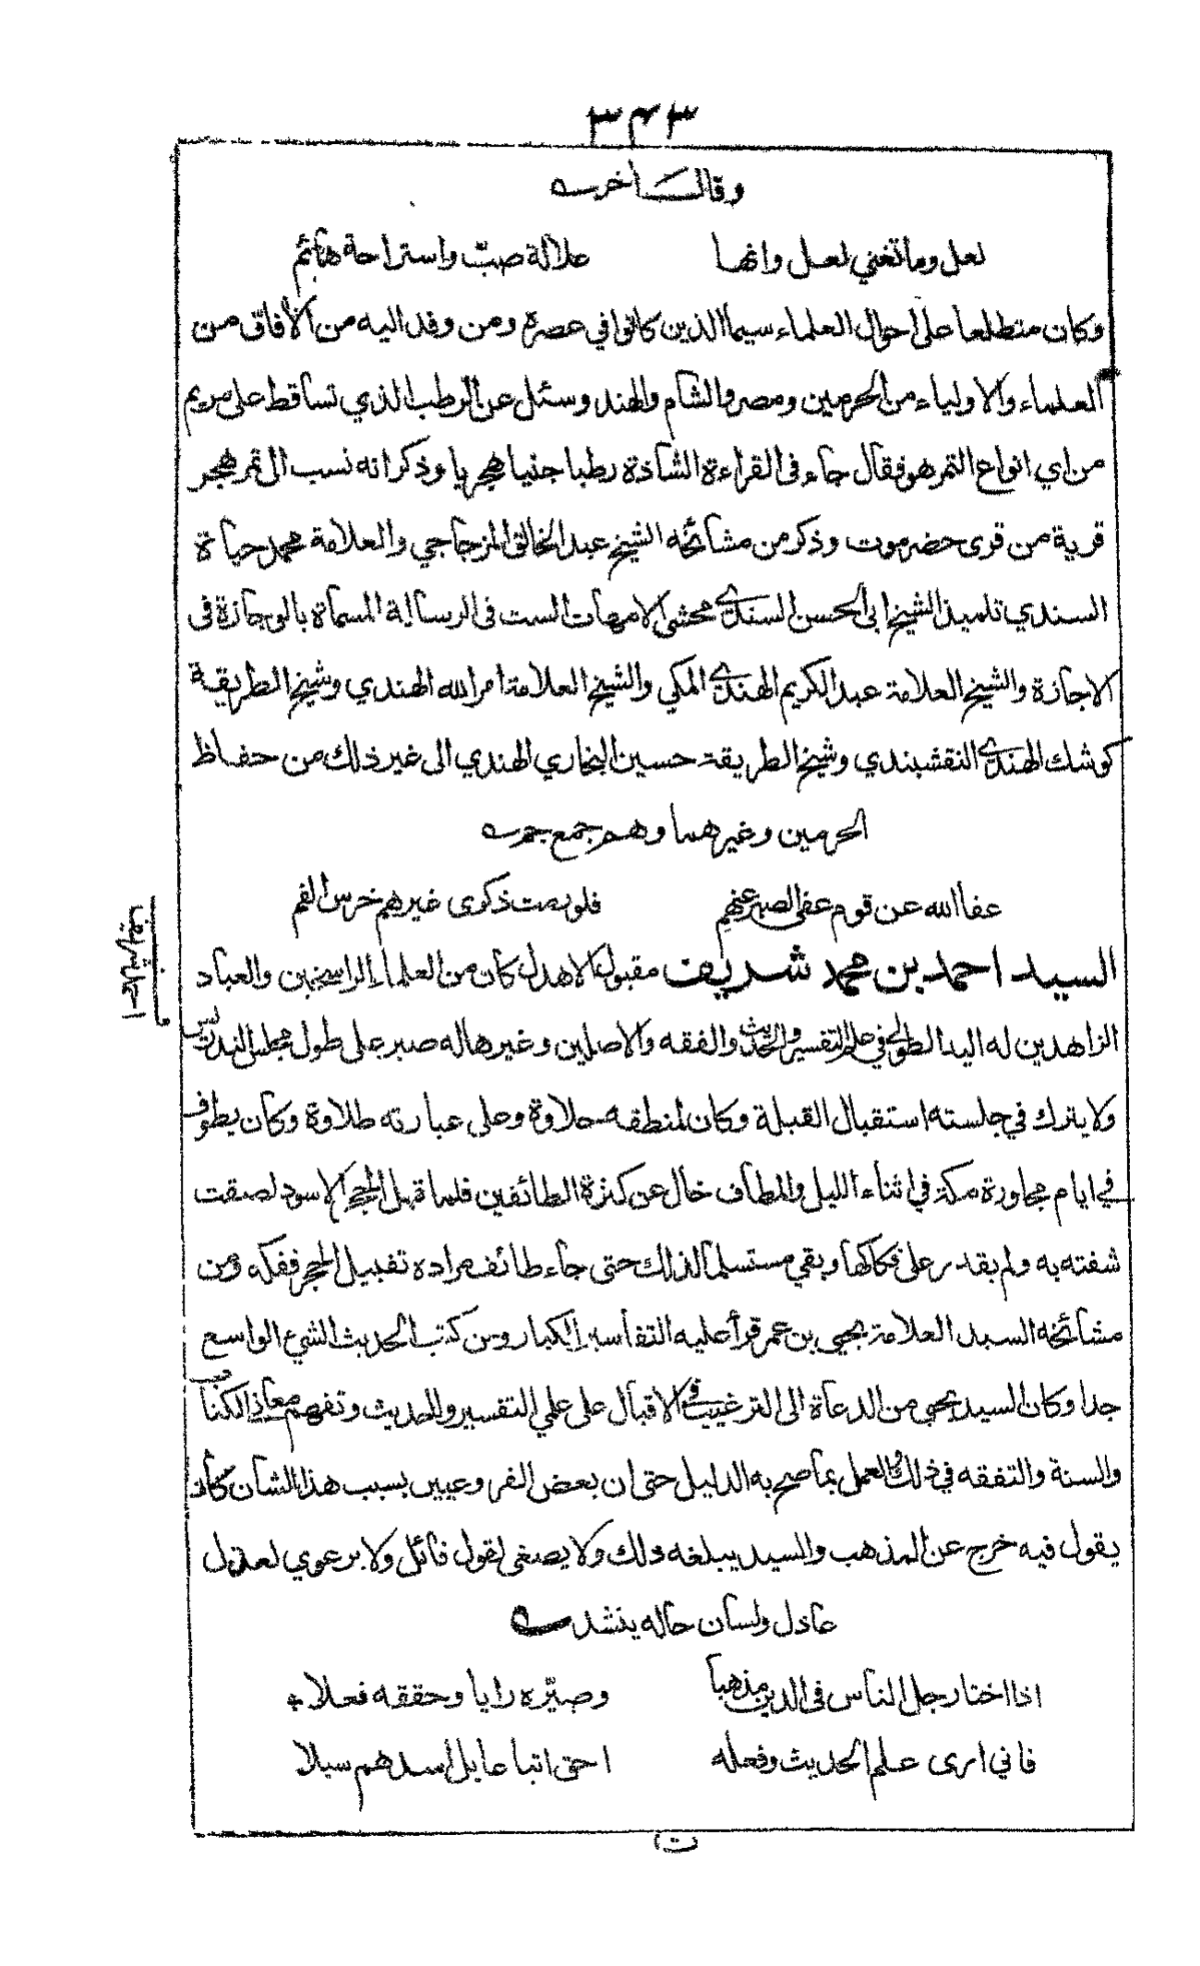 ٣٤٣
وقال أخر
لعل وما تغني لعل وانها علالة صبّ واستراحة هائم
وكان متطلعا على أحوال العلماء سيما الذين كانوا في عصره ومن وفد اليه من الأفاق من
العلماء والاولياء من الحرمين ومصر والشام والهند وسئل عن الرطب الذي تساقط على مريم
من اي انواع التمر هو فقال جاء فى القراءة الشاذة رطبا جنيا هجريا وذكر انه نسب الى تمر هجر
قرية من قرى حضرموت وذكر من مشائخه الشيخ عبد الخالق المزجاجي والعلامة محمد حياة
السندي تلميذ الشيخ ابى الحسن السندي محشى الامهات الست فى الرسالة المسماة بالوجازة فى
الاجازة والشيخ العلامة عبد الكريم الهندي المكي والشيخ العلامة امر الله الهندي وشيخ الطريقة
كوشك الهندي النقشبندي وشيخ الطريقة حسين البخاري الهندي الى غير ذلك من حفاظ
الحرمين وغيرهما وهم جمع جم
عفا الله عن قوم عفى الصبر عنهم فلو رمت ذكرى غيرهم خرس الفم
السيد احمد بن محمد شريف مقبول الاهدل كان من العلماء الراسخين والعباد
ا۔حمد شريف
الزاهدين له اليد الطولى في علم التفسير والحديث والفقه والاصلين وغيرها له صبر على طول مجلس التدريس
ولا يترك في جلسته استقبال القبلة وكان لمنطقه حلاوة وعلى عبارته طلاوة وكان يطوف
في ايام مجاورة مكة في اثناء الليل والمطاف خال عن كثرة الطائفين فلما قبل الحجر الاسود لصقت
شفته به ولم يقدر على فكاكها وبقي مستسلما لذلك حتى جاء طائف مراده تقبيل الحجر ففكه ومن
مشائخه السيد العلامة يحيى بن عمر قرأ عليه التفاسير الكبار ومن كتب الحديث الشئ الواسع
جدا وكان السيد يحيى من الدعاة الى الترغيب في الاقبال على علمي التفسير والحديث وتفهم معاني الكتاب
والسنة والتفقه في ذلك والعمل بما صح به الدليل حتى ان بعض الفروعيين بسبب هذا الشأن كان
يقول فيه خرج عن المذهب والسيد يبلغه ذلك ولا يصغى لقول قائل ولا يرعوي لعذل
عاذل ولسان حاله ينشد
اذا اختار جل الناس فى الدين مذهبا وصيّره رايا وحققه فعلا
فاني ارى علم الحديث وفعله احق اتباعا بل أسدهم سبلا
ت